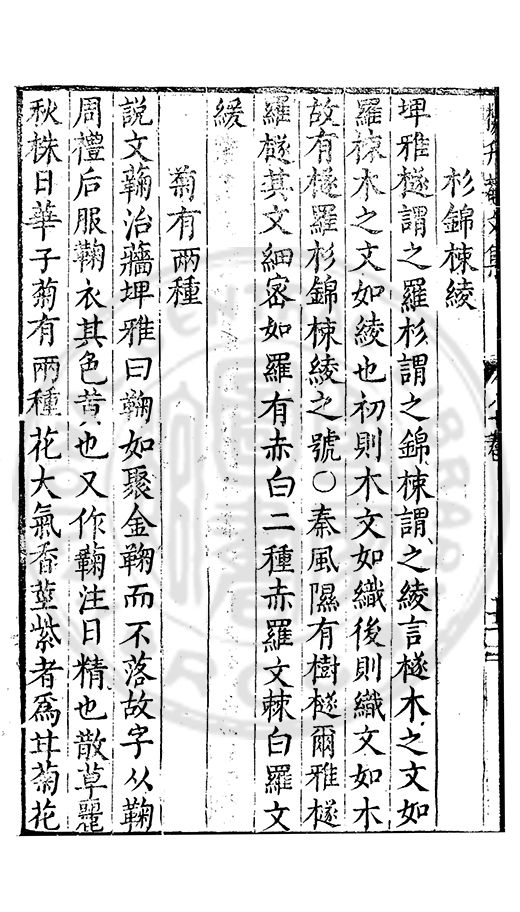 楊升菴文集
八十卷
十二
杉錦棟綾
埤雅檖謂之羅杉謂之錦棟謂之綾言檖木之文如
羅棟木之文如綾也初則木文如織後則織文如木
故有檖羅杉錦棟綾之號〇秦風隰有樹檖爾雅檖
羅檖其文細密如羅有赤白二種赤羅文棘白羅文
緩
菊有兩種
說文蘜治蘠埤雅曰鞠如聚金鞠而不落故字从鞠
周禮后服鞠衣其色黄也又作蘜注日精也散草麗
秋株日華子菊有兩種花大氣香莖紫者爲甘菊花